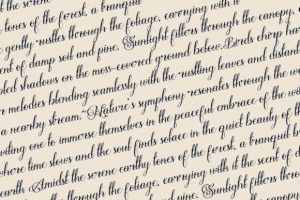 at the serene
tones of the forest, a tranquil
gently rustles through the foliage, carrying with it
ent of damp soil and pine. Sunlight filters through the canopy,
pled shadows on the moss-covered ground below. Birds chirp har
r melodies blending seamlessly with the rustling leaves and distan
a nearby stream. Nature's symphony resonates through the w
viting one to immerse themselves in the peaceful embrace of the wi
where time slows and the soul finds solace in the quiet beauty of t
earth Amidst the serene earthy tones of the forest, a tranquil b
through the foliage, carrying with it the scent of d
and pine. Sunlight filters thro